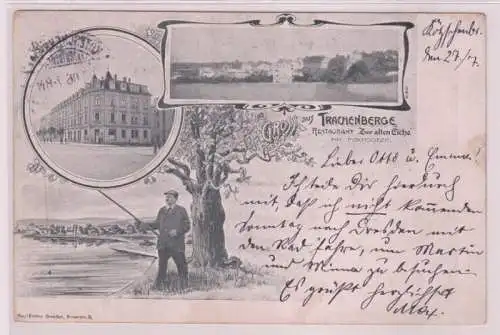 Kötzschenbr.
den 27/7.
Gruss aus TRACHENBERGE
RESTAURANT "Zur alten Eiche"
Lieber Otto u. Emma!
Ich teile Dir hierdurch
mit, daß ich nicht kommenden
Sonntag nach Dresden mit
dem Rad fahre, um Martin
und Minna zu besuchen.
Es grüßt herzlichst
Max.